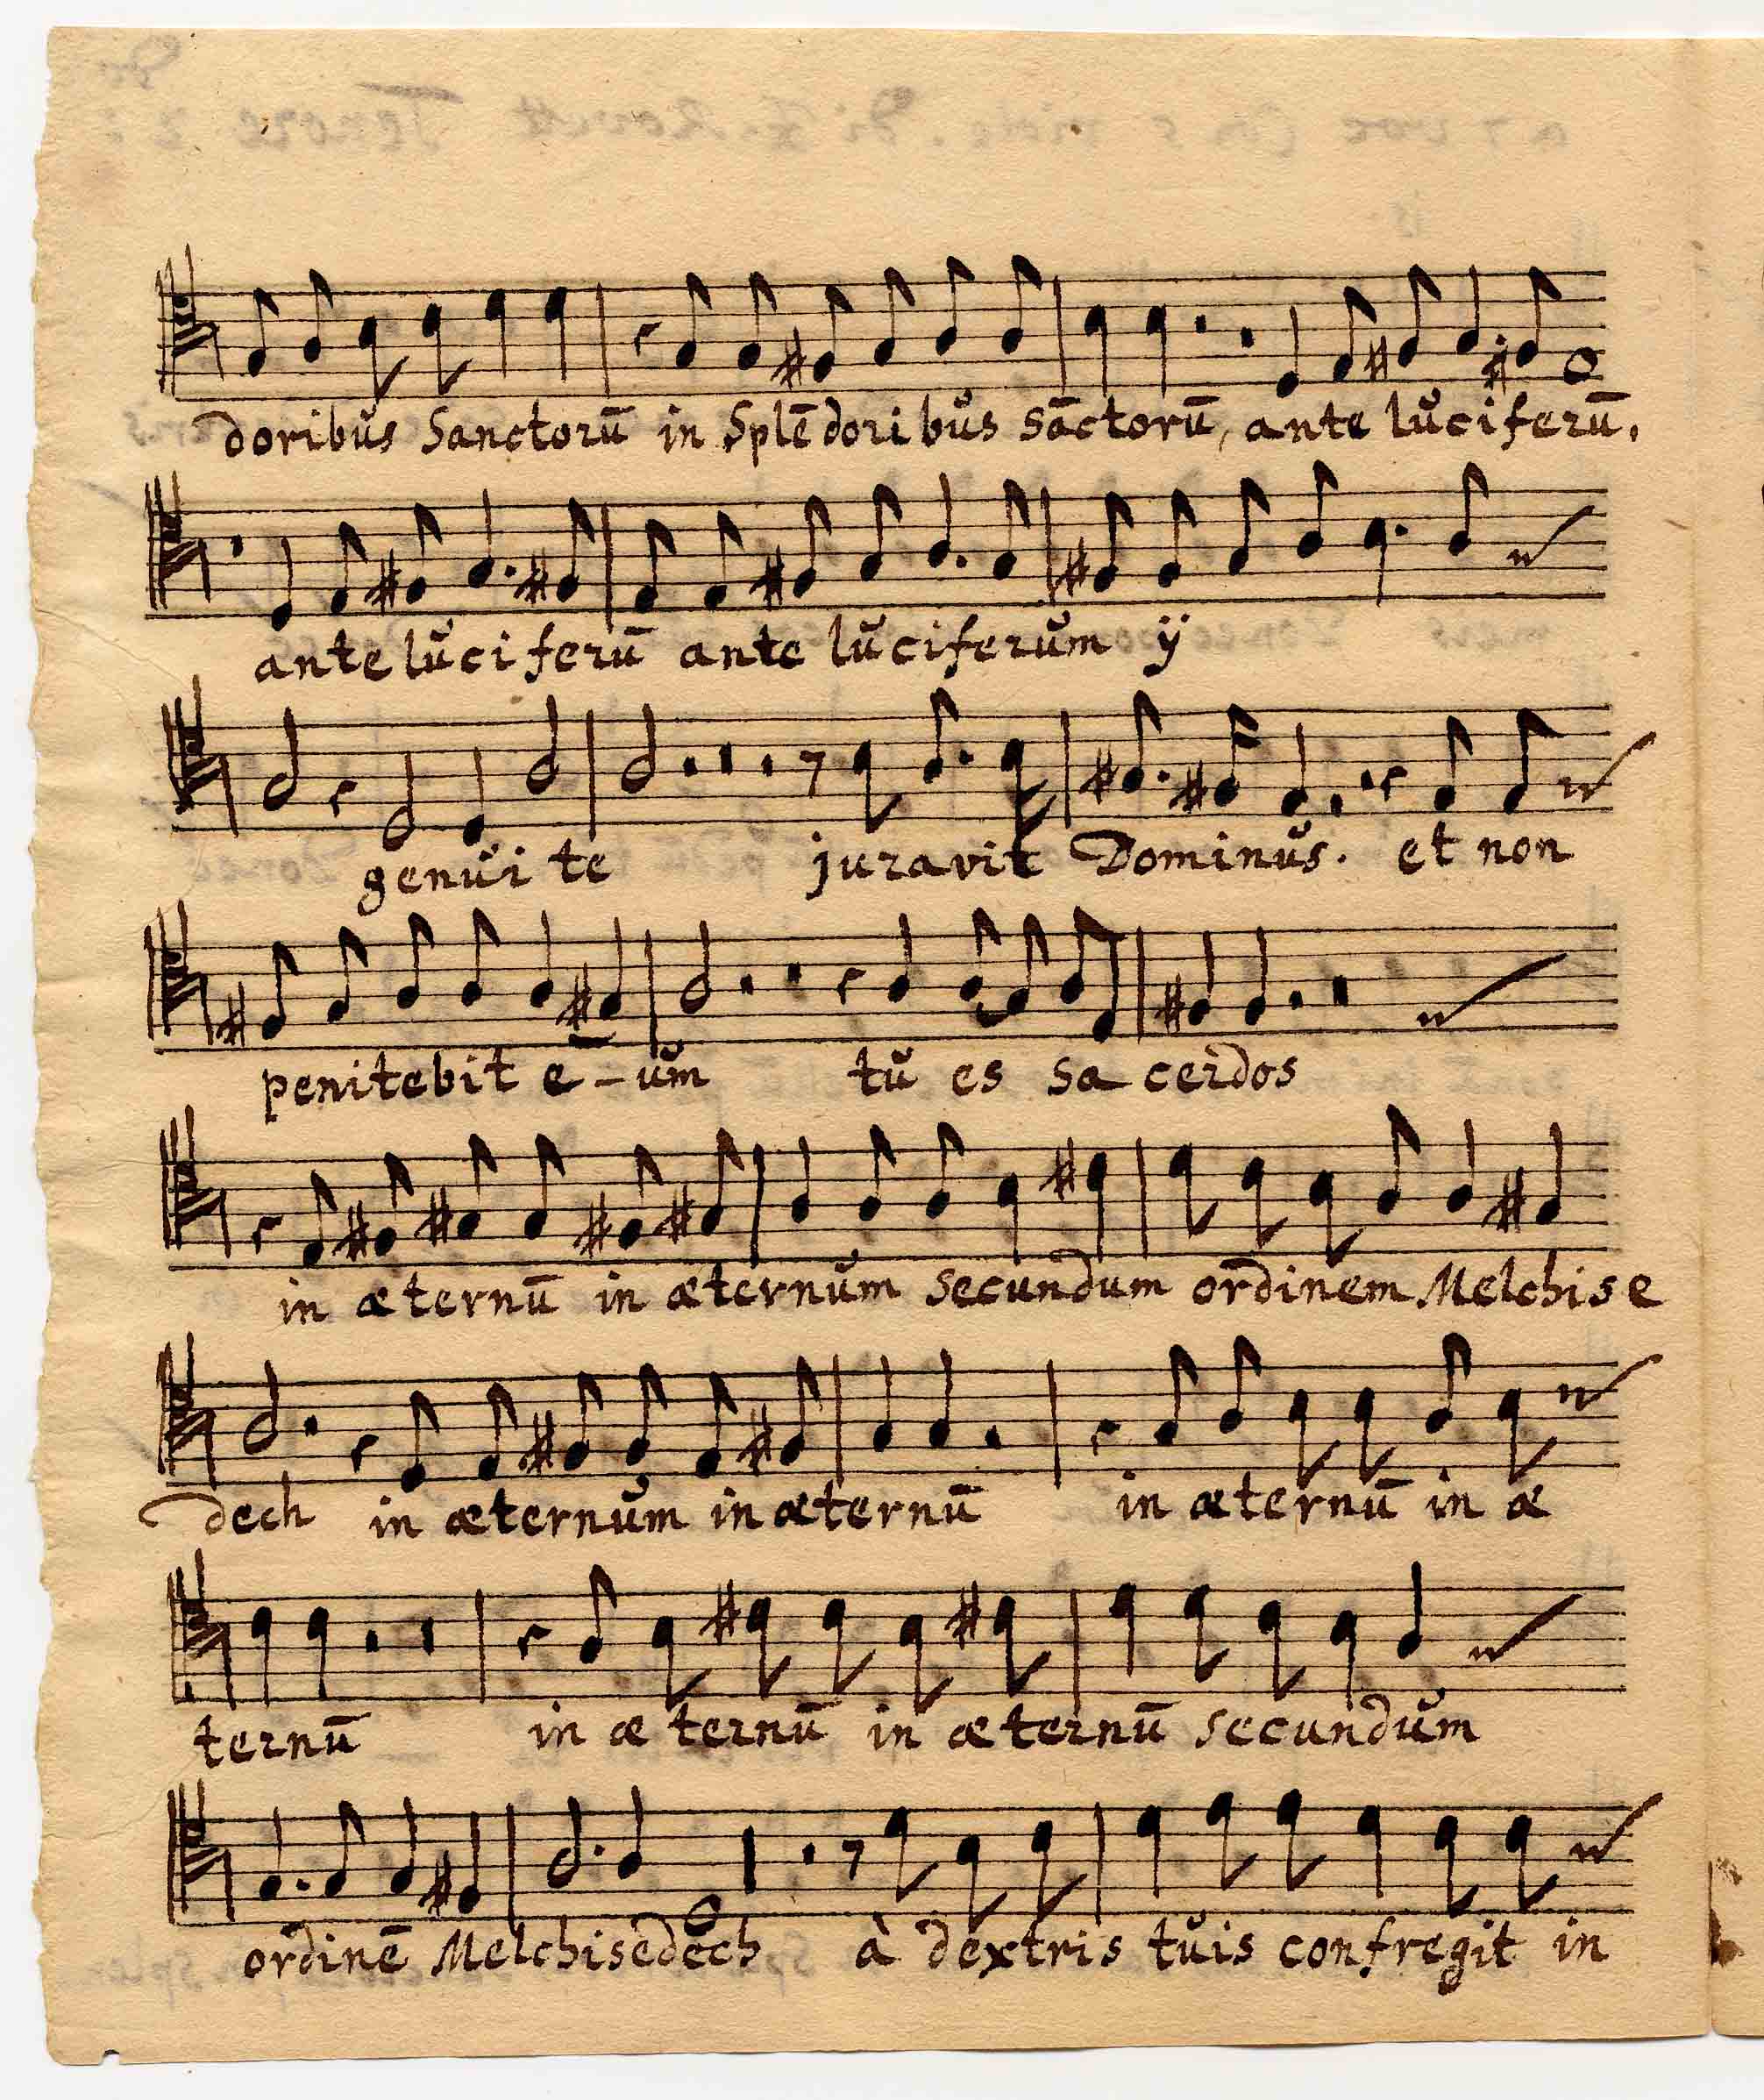 doribŭs Sanctorū in Splēdoribŭs Sāctorū, ante lŭciferū.
ante lŭciferū ante lŭciferŭm ÿ
genŭi te juravit Dominŭs. et non
penitebit e-ŭm tŭ es Sa cerdos
in æternū in æternŭm Secundum ordinem Melchise
dech in æternŭm in æternū in æternū in æ
ternū in æternū in æternū Secundŭm
ordinē Melchisedech à dextris tŭis confregit in